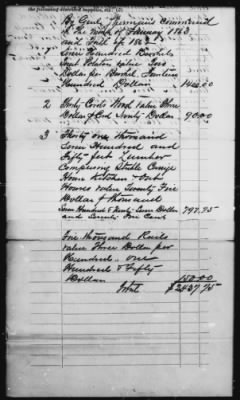 the following described supplies, viz: (2)
By Genl commenced
of the month of February 1863
and Fall of 1863
Hundred Bushels
Sweet Potatoes value
Dollar per Bushel Fourteen
Hundred Dollars 1400.00
2 Cords Wood value Three
Dollars per Cord Ninety Dollars 90.00
3 Thirty one thousand
Seven Hundred and
Fifty feet Lumber
Comprising Stable Cribs
House Kitchen & Out
Houses value Twenty Five
Dollars thousand
Seven Hundred & Ninty Seven Dollars 797.75
and Seventy Five Cents
Five thousand Rails
value Three Dollars per
Hundred one
Hundred & Fifty
Dollars 150.00
Total $2437.75